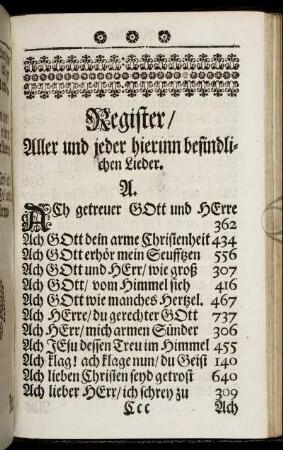 Register/
Aller und jeder hierinn befindli-
chen Lieder.
A.
ACh getreuer GOtt und HErre
362
Ach GOtt dein arme Christenheit 434
Ach GOtt erhör mein Seufftzen 556
Ach GOtt und HErr/ wie groß 307
Ach GOtt/ vom Himmel sieh 416
Ach GOtt wie manches Hertzel. 467
Ach HErre/ du gerechter GOtt 737
Ach HErr/ mich armen Sünder 306
Ach JEsu dessen Treu im Himmel 455
Ach klag! ach klage nun/ du Geist 140
Ach lieben Christen seyd getrost 640
Ach lieber HErr/ ich schrey zu 309
Ccc Ach